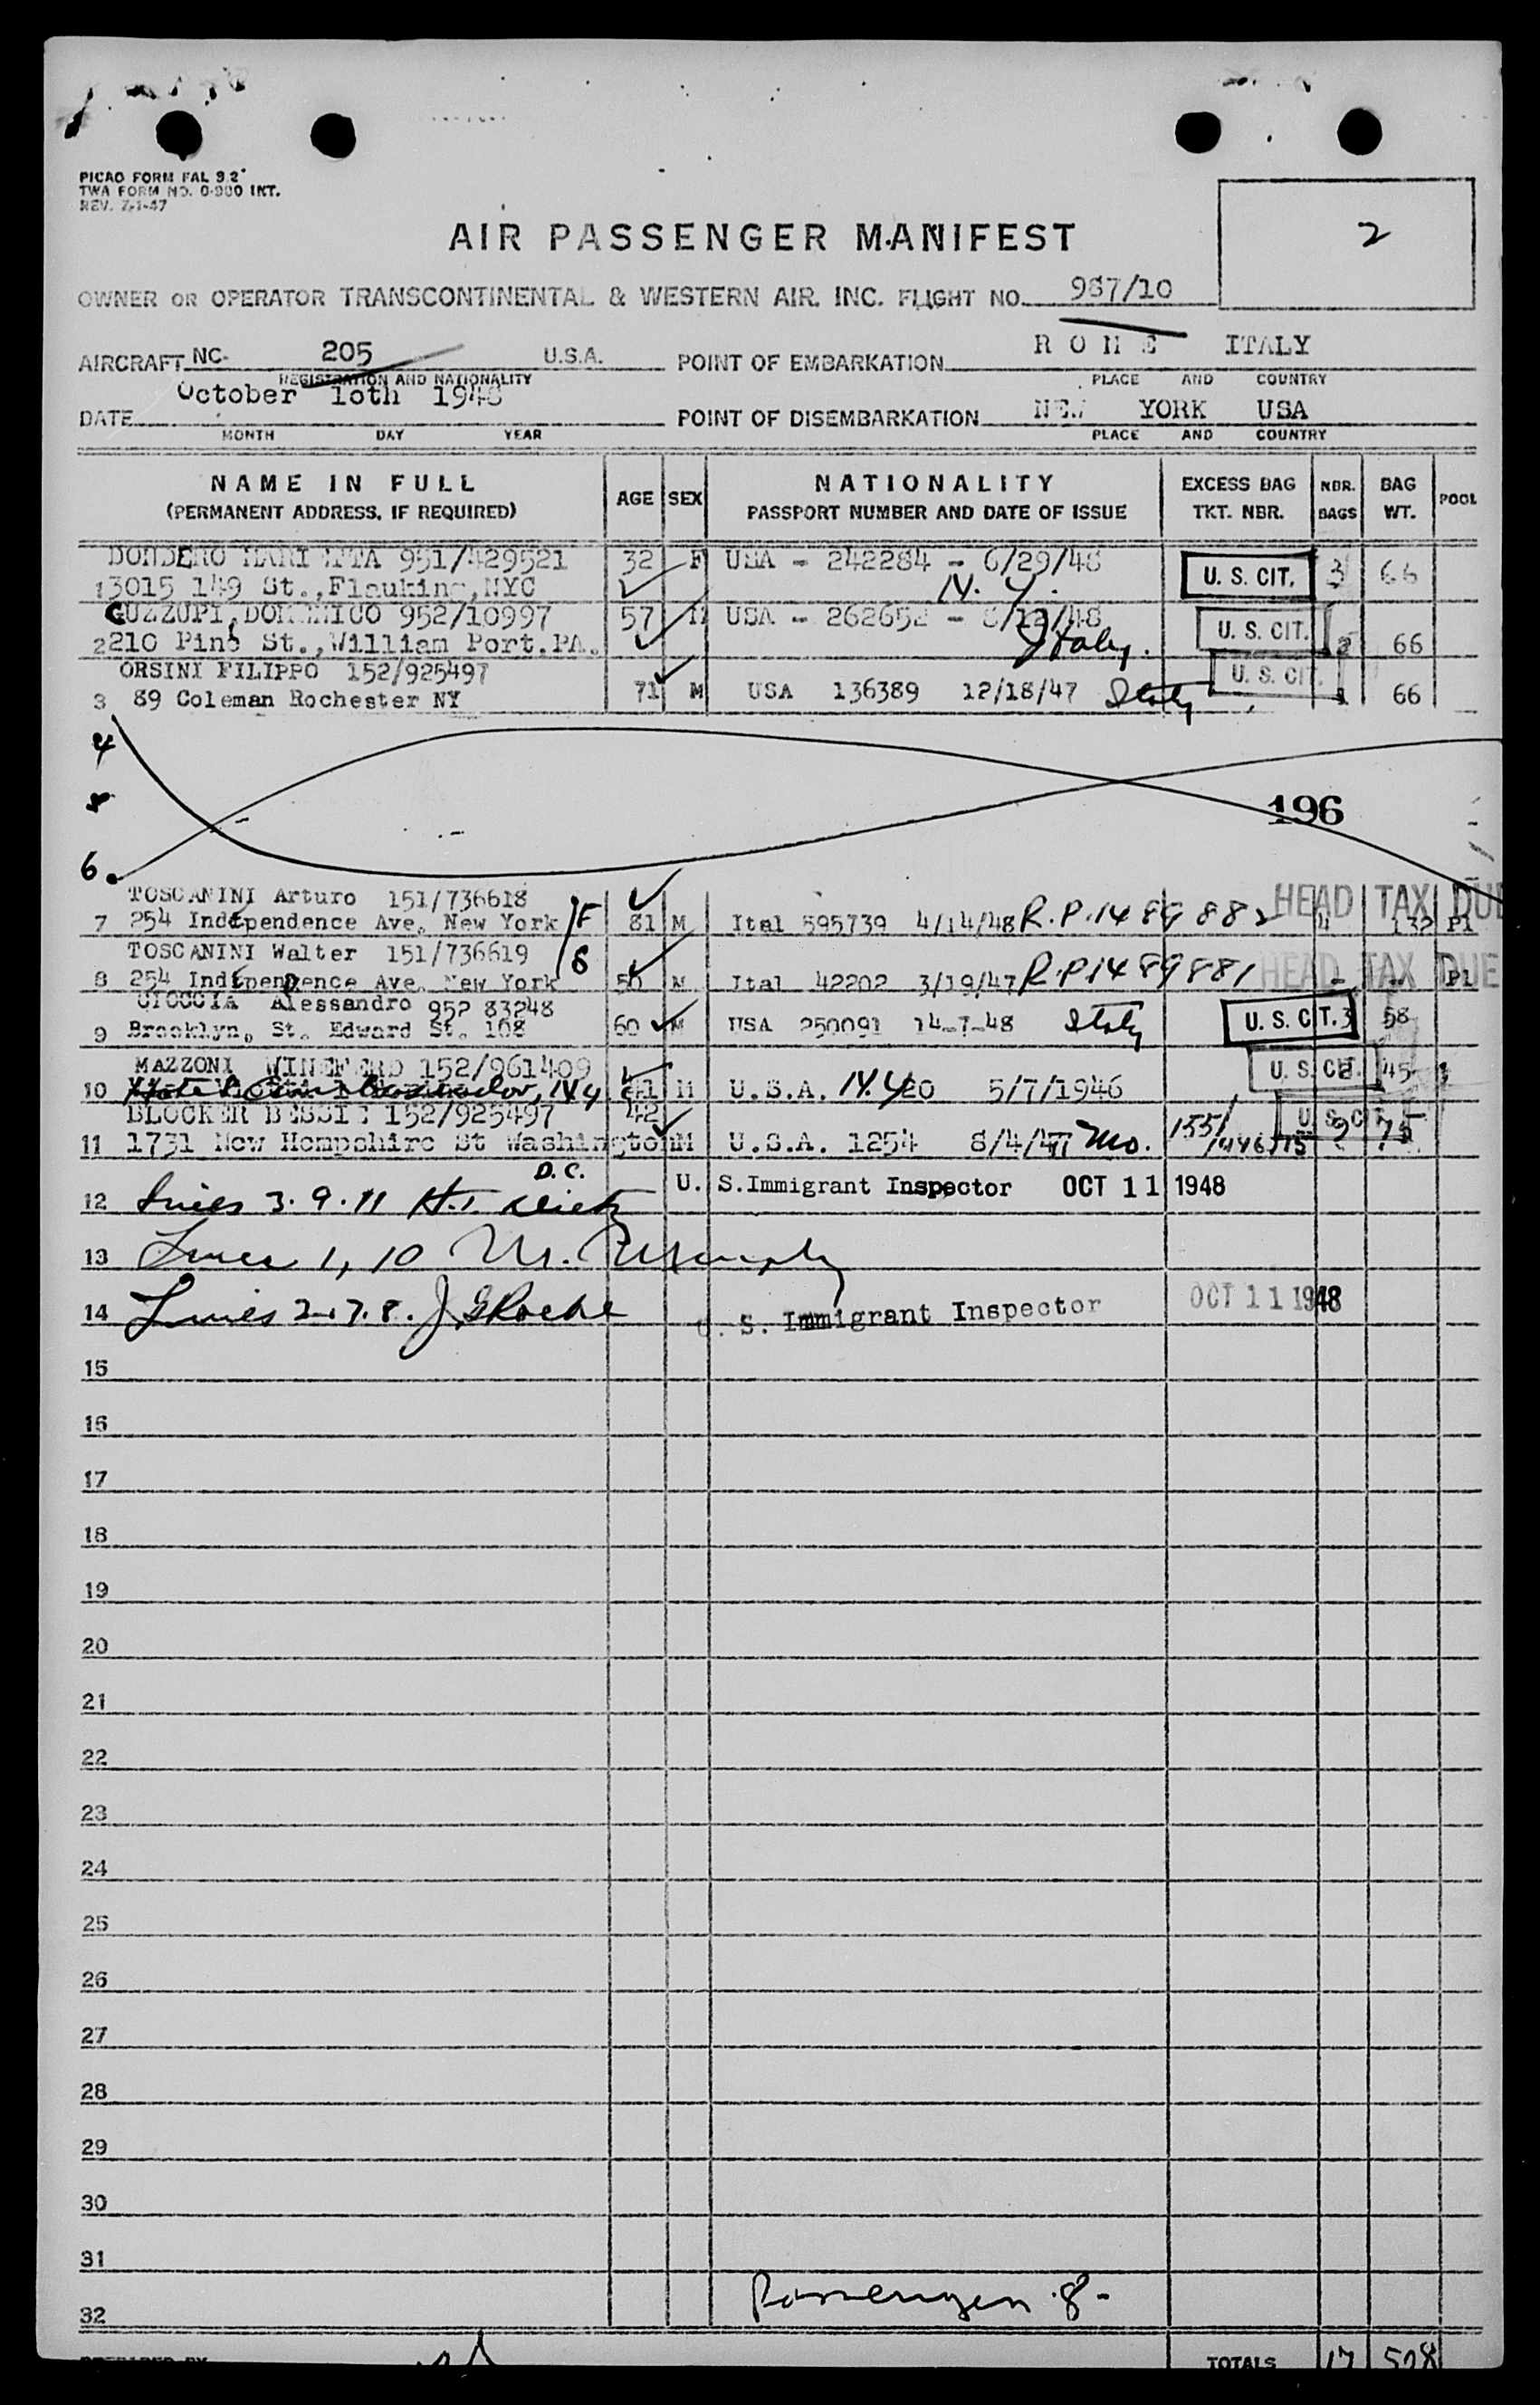 PICAO FORM FAL 9.2
TWA FORM NO. O-900 INT.
REV. 7-1-47
2
AIR PASSENGER MANIFEST
OWNER OR OPERATOR TRANSCONTINENTAL & WESTERN AIR. INC. FLIGHT NO. 987/10
AIRCRAFT NC- 205 U.S.A. POINT OF EMBARKATION R O M E ITALY
REGISTRATION AND NATIONALITY PLACE AND COUNTRY
DATE October 10th 1948 POINT OF DISEMBARKATION NEW YORK USA
MONTH DAY YEAR PLACE AND COUNTRY
NAME IN FULL AGE SEX NATIONALITY EXCESS BAG NBR. BAG POOL
(PERMANENT ADDRESS, IF REQUIRED) PASSPORT NUMBER AND DATE OF ISSUE TKT. NBR. BAGS WT.
DONDERO MARIETTA 951/429521 32 F USA - 242284 - 6/29/48 U. S. CIT. 3 66
1 3015 149 St., Flauking, NYC N.Y.
GUZZUPI, DOMENICO 952/10997 57 M USA - 262652 - 8/12/48 U. S. CIT.
2 210 Pine St., William Port. PA. Italy. 2 66
ORSINI FILIPPO 152/925497 U. S. CIT.
3 89 Coleman Rochester NY 71 M USA 136389 12/18/47 Italy 1 66
4
6
196
TOSCANINI Arturo 151/736618 HEAD TAX DUE
7 254 Independence Ave. New York F 81 M Ital 595739 4/14/48 R.P. 1489882 4 132 Pl
TOSCANINI Walter 151/736619 HEAD TAX DUE
8 254 Independence Ave. New York S 50 M Ital 42202 3/19/47 R.P 1489881 - - Pl
CIOCCIA Alessandro 952 83248
9 Brooklyn, St. Edward St. 168 60 M USA 250091 14-7-48 Italy U. S. CIT. 3 58
MAZZONI WINEFERD 152/961409 U. S. CIT.
10 Hotel N.Y 41 M U.S.A. N.Y 20 5/7/1946 2 45
BLOCKER BESSIE 152/925497 42 U. S. CIT.
11 1731 New Hempshire St Washington M U.S.A. 1254 8/4/47 Mo. 155/ 2 75
D.C.
12 Lines 3.9.11 H.T. U. S. Immigrant Inspector OCT 11 1948
13 Lines 1, 10 M. Murphy
14 Lines 2.7.8. J G Roche U. S. Immigrant Inspector OCT 11 1948
15
16
17
18
19
20
21
22
23
24
25
26
27
28
29
30
31
32 Passengers 8-
PREPARED BY TOTALS 17 508